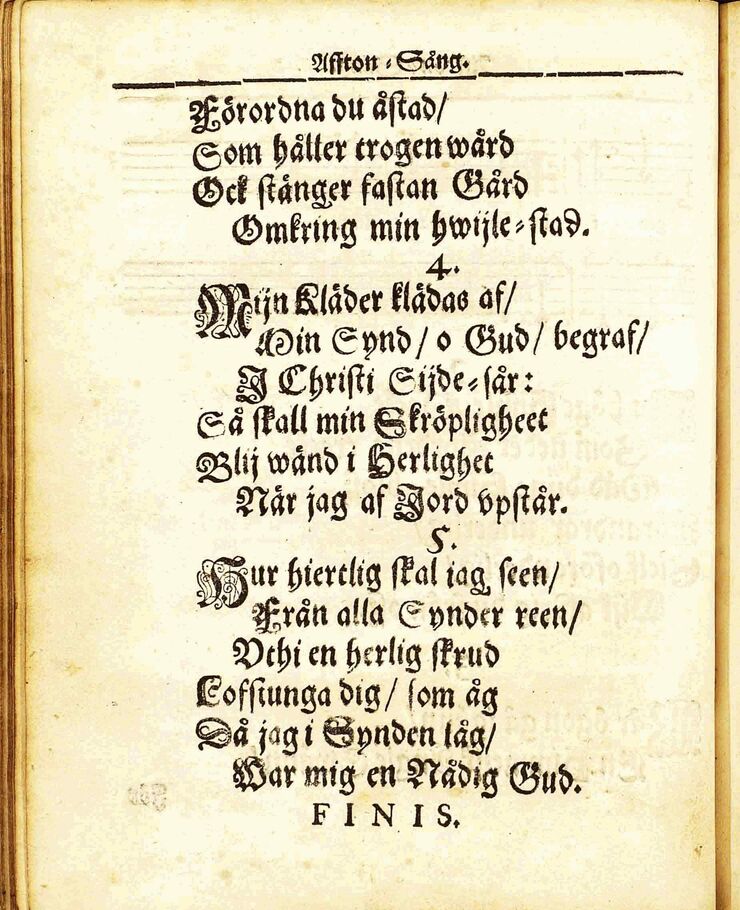 Affton-Sång.
Förordna du åstad/
Som håller trogen wård
Ock stänger fastan Gård
Omkring min hwijle-stad.
4.
Mijn Kläder klädas af/
Min Synd/ o Gud/ begraf/
J Christi Sijde-sår:
Så skall min Skröpligheet
Blij wänd i Herlighet
När jag af Jord vpstår.
5.
Hur hiertlig skal jag seen/
Från alla Synder reen/
Vthi en herlig skrud
Lofsiunga dig/ som åg
Då jag i Synden låg/
War mig en Nådig Gud.
FINIS.